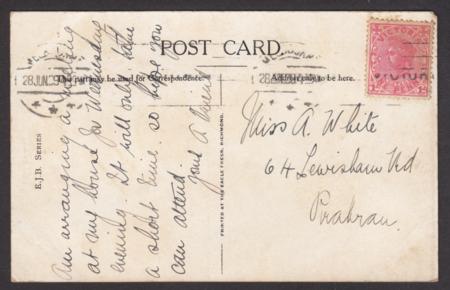 POST CARD.
This part may be used for Correspondence.
Address only to be here.
28 JUN
VICTORIA
Am arranging a
at my house for Wednesday
evening. It will only take
a short time. so hope you
can attend
yours A
Miss A. White
64 Lewisham Rd
Prahran.
E.J.B. SERIES
PRINTED AT THE EAGLE PRESS, RICHMOND.